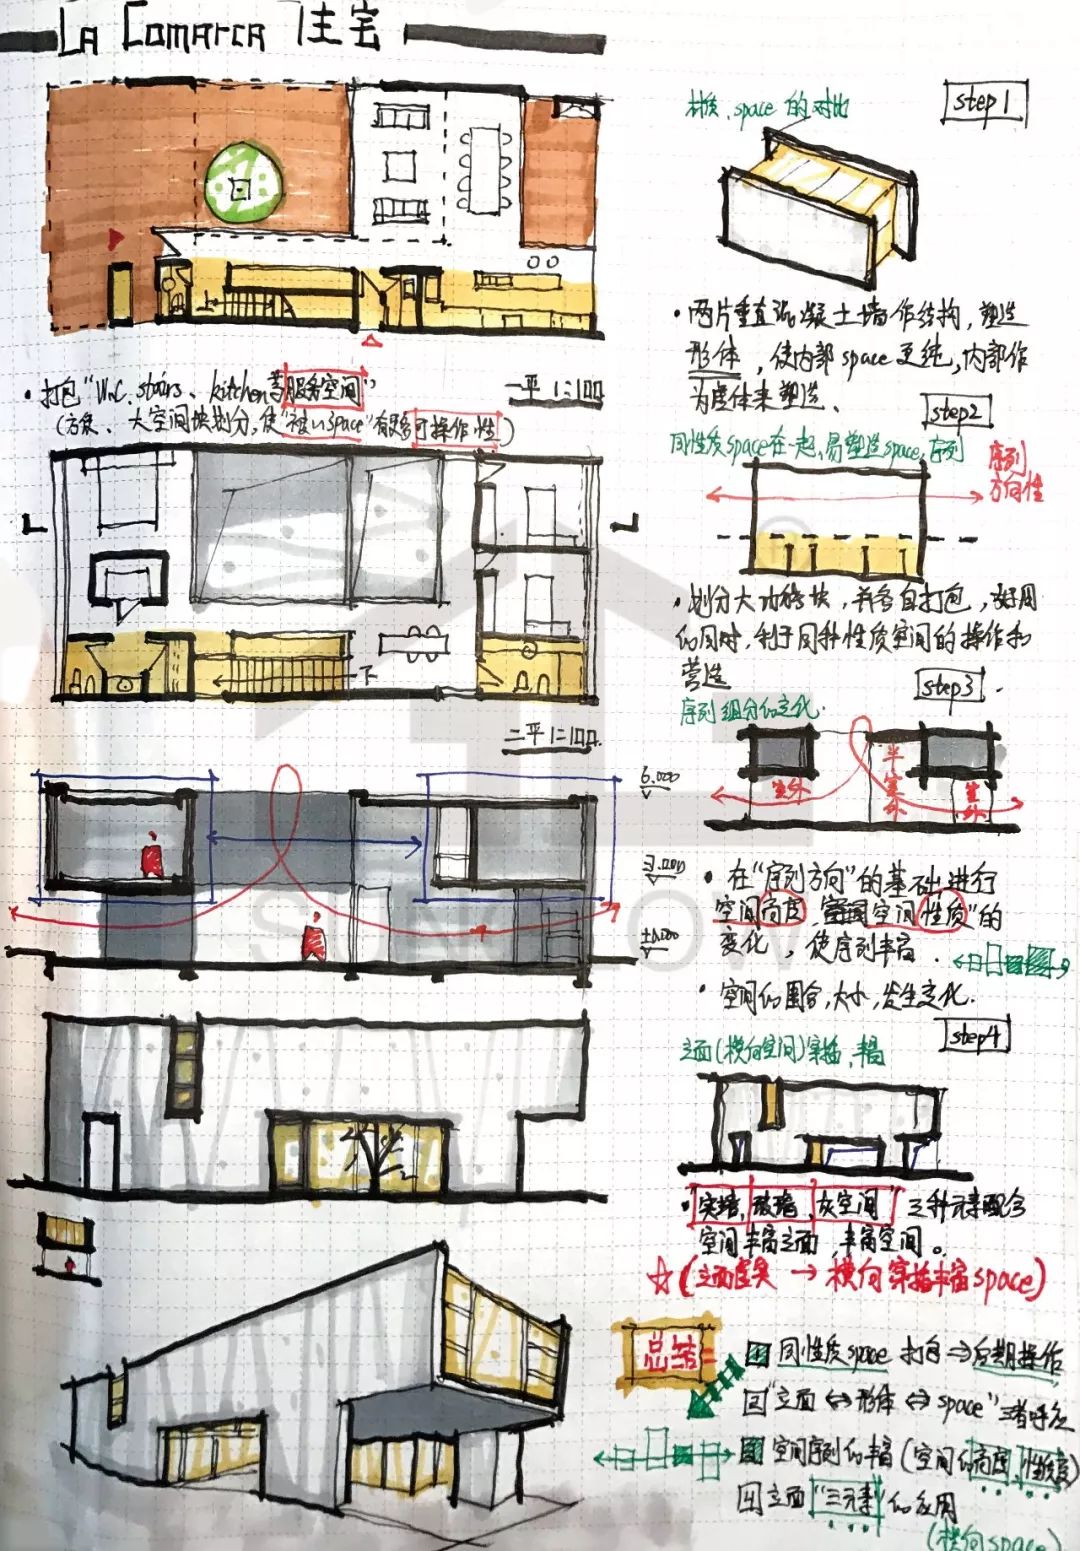 LA COMARCA 住宅
材质、space 的对比
step1
·两片垂直混凝土墙作结构，塑造
形体，使内部space更纯，内部作
为虚体来塑造、
·打包"W.C、stairs、kitchen等服务空间"
一平 1:100
(方案、大空间块划分，使"被用space"有更多可操作性)
step2
同性质space在一起，易塑造space序列
序列
方向性
·划分大功能块，并各自打包，好用
的同时，利于同种性质空间的操作和
营造
step3
序列组分的变化.
下
二平 1:100.
室外
半
室
外
室外
6.000
3.000
±0.000
·在"序列方向"的基础进行
空间高度、空间性质"的
变化，使序列丰富.
·空间的围合，大小，发生变化.
step4
立面(横向空间)穿插，丰富
·"实墙，玻璃，灰空间"三种元素配合
空间丰富立面，丰富空间。
☆(立面虚实→横向穿插丰富space)
总结
1 同性质space打包→后期操作
2 "立面⇔形体⇔space"三者呼应
3 空间序列的丰富(空间的高度、性质变)
4 立面"三元素"的应用
(横向space)
SUNFLOW
®